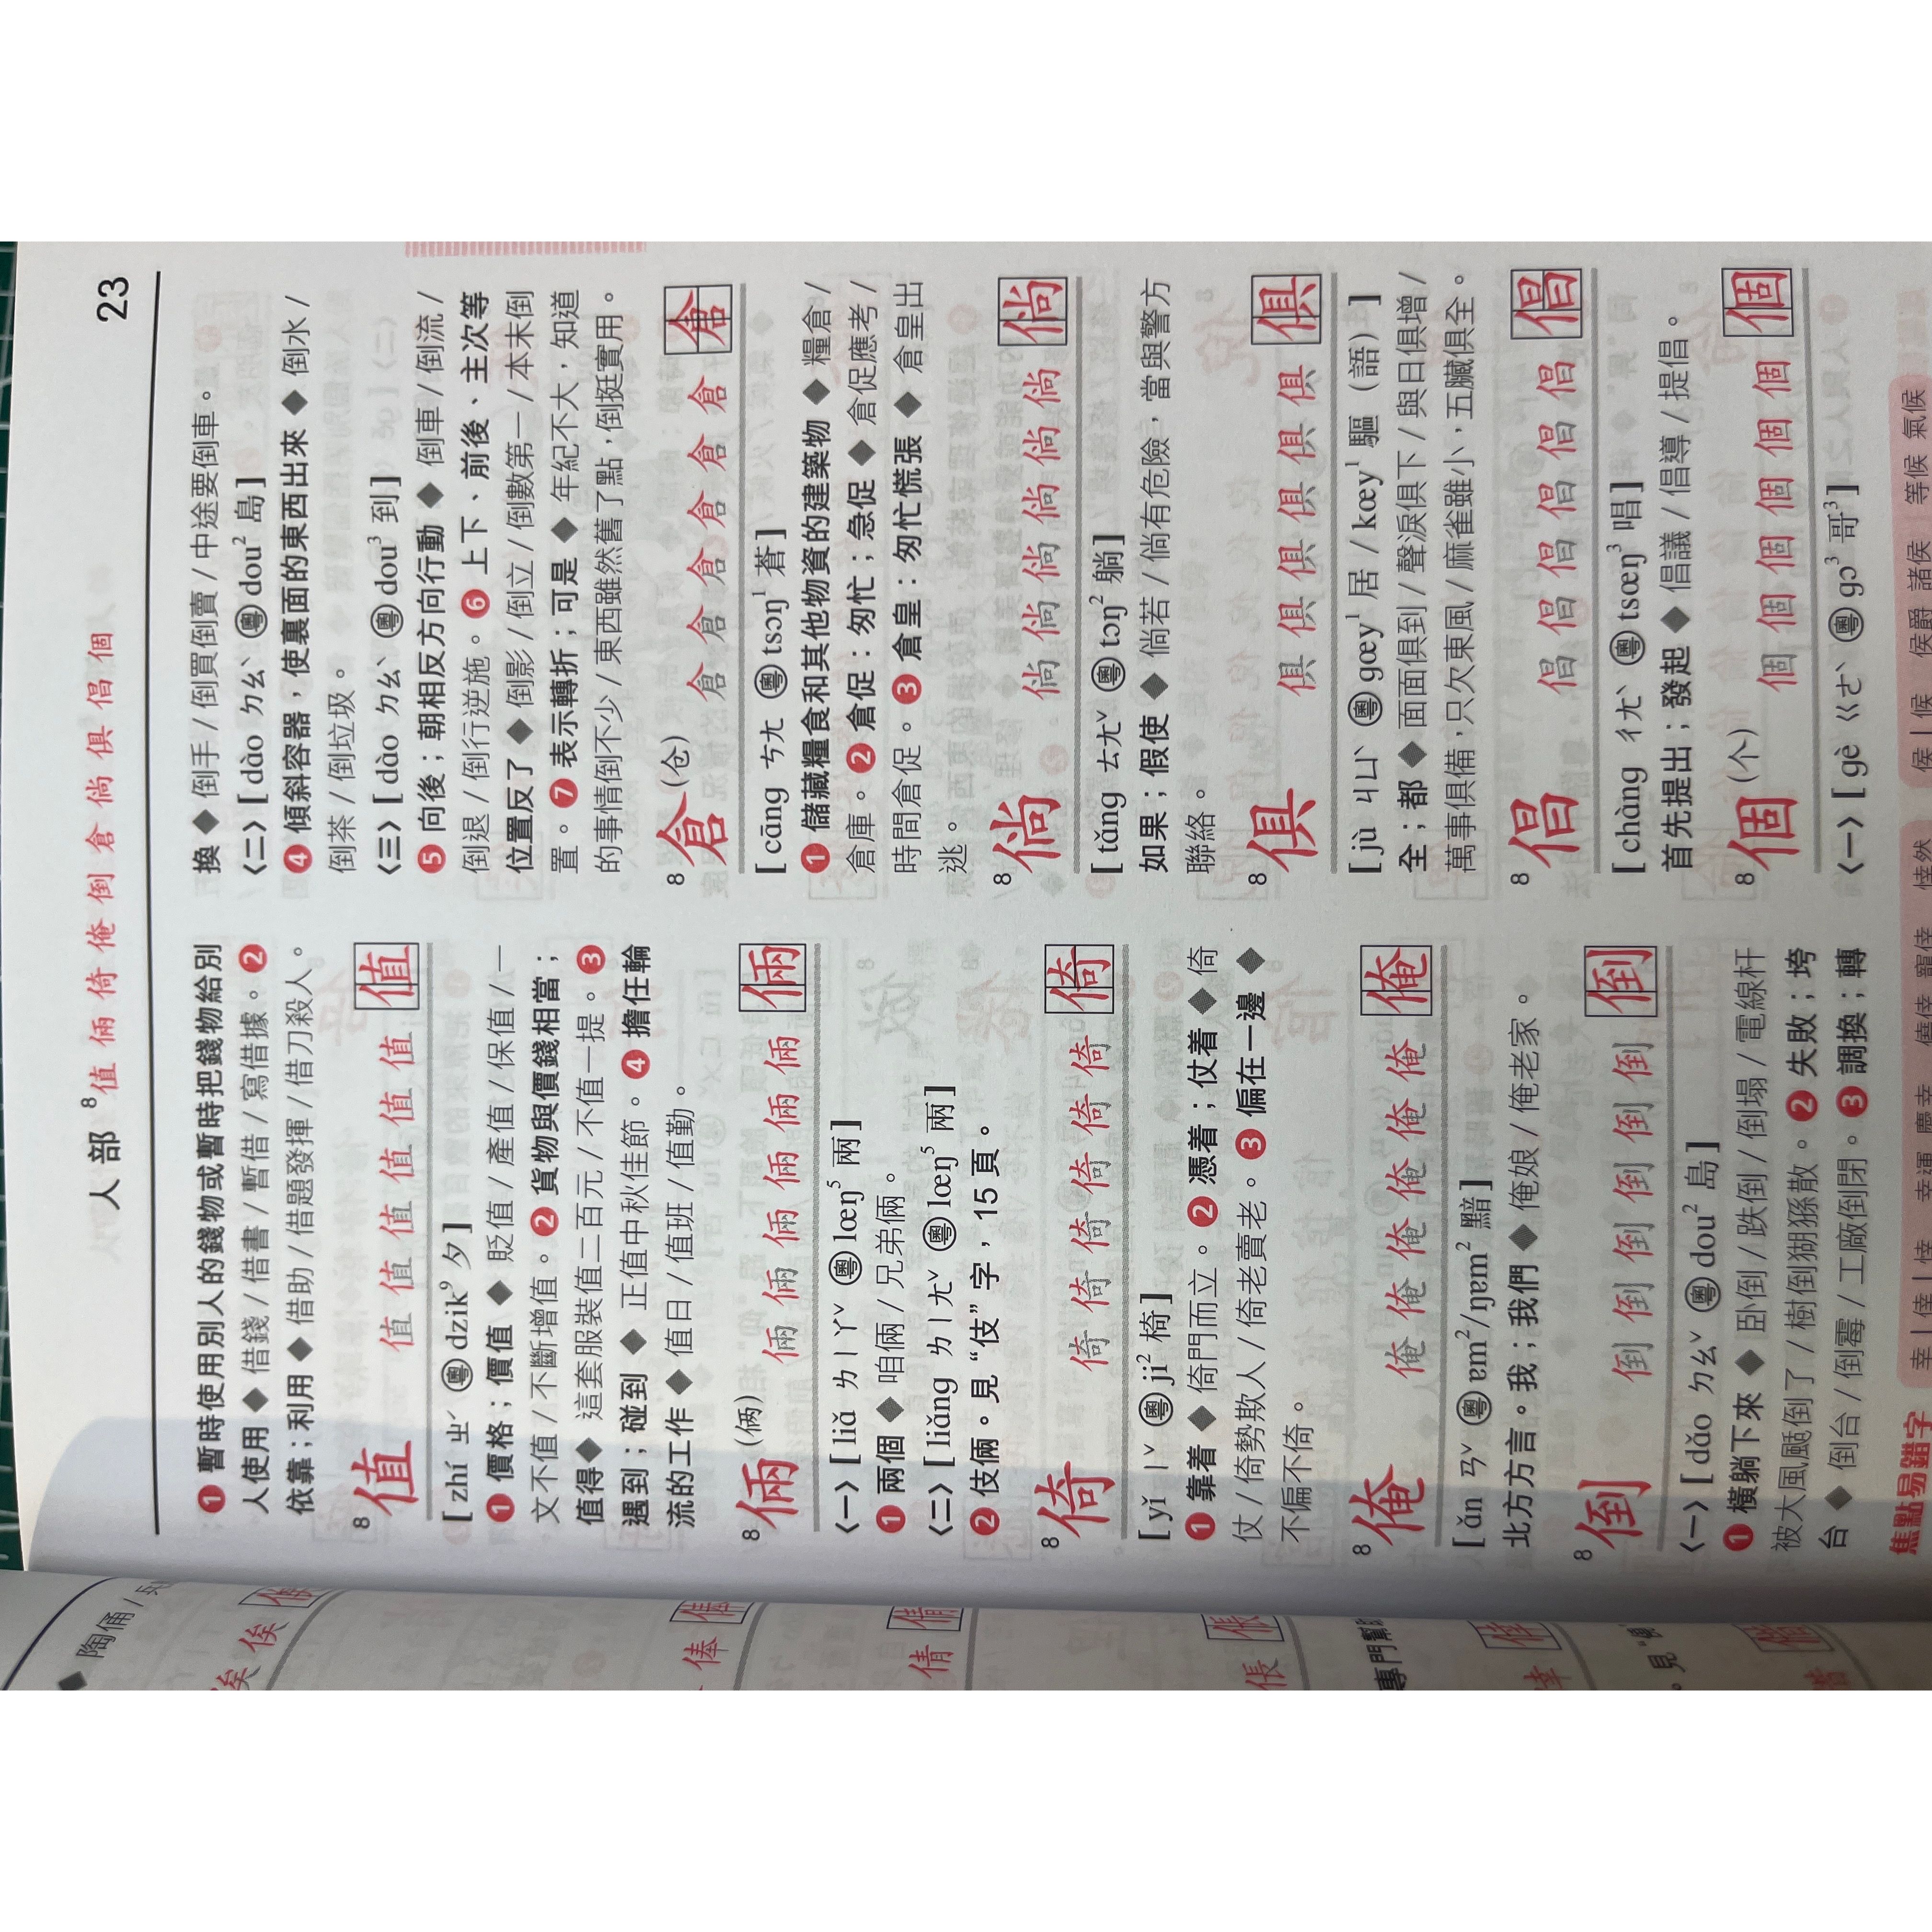 人部 8 值倆倚俺倒倉倘俱倡個 23
❶ 暫時使用別人的錢物或暫時把錢物給別
人使用 ◆ 借錢 / 借書 / 暫借 / 寫借據。❷
依靠；利用 ◆ 借助 / 借題發揮 / 借刀殺人。
8 值 值 值 值 值 值 值 值
[ zhí ㄓˊ 粵 dzik⁹ 夕 ]
❶ 價格；價值 ◆ 貶值 / 產值 / 保值 / 一
文不值 / 不斷增值。❷ 貨物與價錢相當；
值得◆ 這套服裝值二百元 / 不值一提。❸
遇到；碰到 ◆ 正值中秋佳節。❹ 擔任輪
流的工作 ◆ 值日 / 值班 / 值勤。
8 倆(俩) 倆 倆 倆 倆 倆 倆 倆
〈一〉[ liǎ ㄌㄧㄚˇ 粵 lœŋ⁵ 兩 ]
❶ 兩個 ◆ 咱倆 / 兄弟倆。
〈二〉[ liǎng ㄌㄧㄤˇ 粵 lœŋ⁵ 兩 ]
❷ 伎倆。見“伎”字，15 頁。
8 倚 倚 倚 倚 倚 倚 倚 倚
[ yǐ ㄧˇ 粵 ji² 椅 ]
❶ 靠着 ◆ 倚門而立。❷ 憑着；仗着 ◆ 倚
仗 / 倚勢欺人 / 倚老賣老。❸ 偏在一邊 ◆
不偏不倚。
8 俺 俺 俺 俺 俺 俺 俺 俺
[ ǎn ㄢˇ 粵 ɐm²/ŋɐm² 黯 ]
北方方言。我；我們 ◆ 俺娘 / 俺老家。
8 倒 倒 倒 倒 倒 倒 倒 倒
〈一〉[ dǎo ㄉㄠˇ 粵 dou² 島 ]
❶ 橫躺下來 ◆ 卧倒 / 跌倒 / 倒塌 / 電線杆
被大風颳倒了 / 樹倒猢猻散。❷ 失敗；垮
台 ◆ 倒台 / 倒霉 / 工廠倒閉。❸ 調換；轉
換 ◆ 倒手 / 倒買倒賣 / 中途要倒車。
〈二〉[ dào ㄉㄠˋ 粵 dou² 島 ]
❹ 傾斜容器，使裏面的東西出來 ◆ 倒水 /
倒茶 / 倒垃圾。
〈三〉[ dào ㄉㄠˋ 粵 dou³ 到 ]
❺ 向後；朝相反方向行動 ◆ 倒車 / 倒流 /
倒退 / 倒行逆施。❻ 上下、前後、主次等
位置反了 ◆ 倒影 / 倒立 / 倒數第一 / 本末倒
置。❼ 表示轉折；可是 ◆ 年紀不大，知道
的事情倒不少 / 東西雖然舊了點，倒挺實用。
8 倉(仓) 倉 倉 倉 倉 倉 倉 倉
[ cāng ㄘㄤ 粵 tsɔŋ¹ 蒼 ]
❶ 儲藏糧食和其他物資的建築物 ◆ 糧倉 /
倉庫。❷ 倉促：匆忙；急促 ◆ 倉促應考 /
時間倉促。❸ 倉皇：匆忙慌張 ◆ 倉皇出
逃。
8 倘 倘 倘 倘 倘 倘 倘 倘
[ tǎng ㄊㄤˇ 粵 tɔŋ² 躺 ]
如果；假使 ◆ 倘若 / 倘有危險，當與警方
聯絡。
8 俱 俱 俱 俱 俱 俱 俱 俱
[ jù ㄐㄩˋ 粵 gœy¹ 居 / kœy¹ 驅（語）]
全；都 ◆ 面面俱到 / 聲淚俱下 / 與日俱增 /
萬事俱備，只欠東風 / 麻雀雖小，五臟俱全。
8 倡 倡 倡 倡 倡 倡 倡 倡
[ chàng ㄔㄤˋ 粵 tsœŋ³ 唱 ]
首先提出；發起 ◆ 倡議 / 倡導 / 提倡。
8 個(个) 個 個 個 個 個 個 個
〈一〉[ gè ㄍㄜˋ 粵 gɔ³ 哥³ ]
焦點易錯字 幸 | 倖 幸運 慶幸 僥倖 寵倖 悻然 侯 | 候 侯爵 諸侯 等候 氣候
◆ 陶俑 / 兵
俟 俟
俸
倩
倀
專門幫
倖
。見“